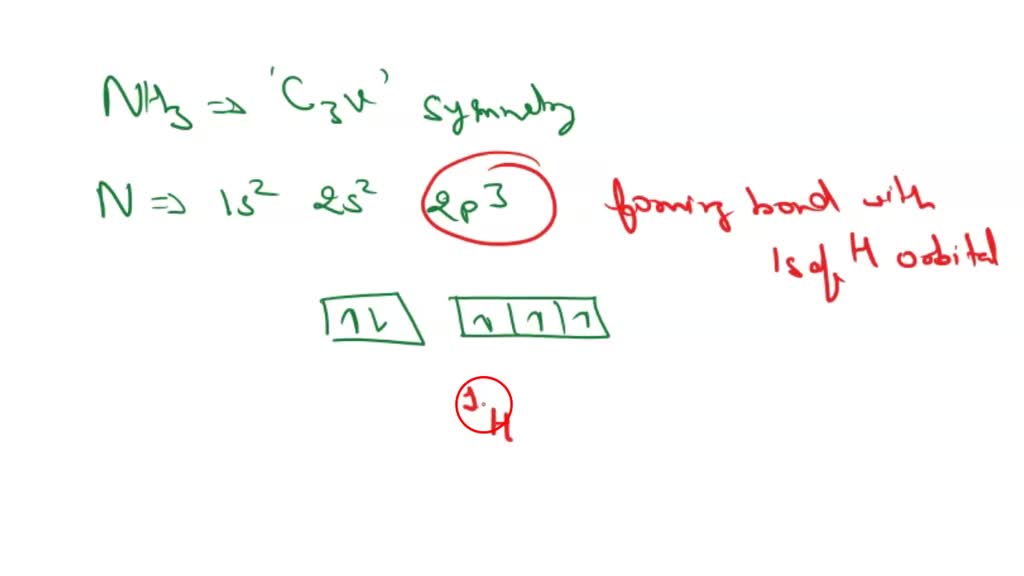 NH₃ ⇒ 'C₃v' symmetry
N ⇒ 1s² 2s² 2p³ forming bond with
1s of H orbital
1 1 1 1 1
H